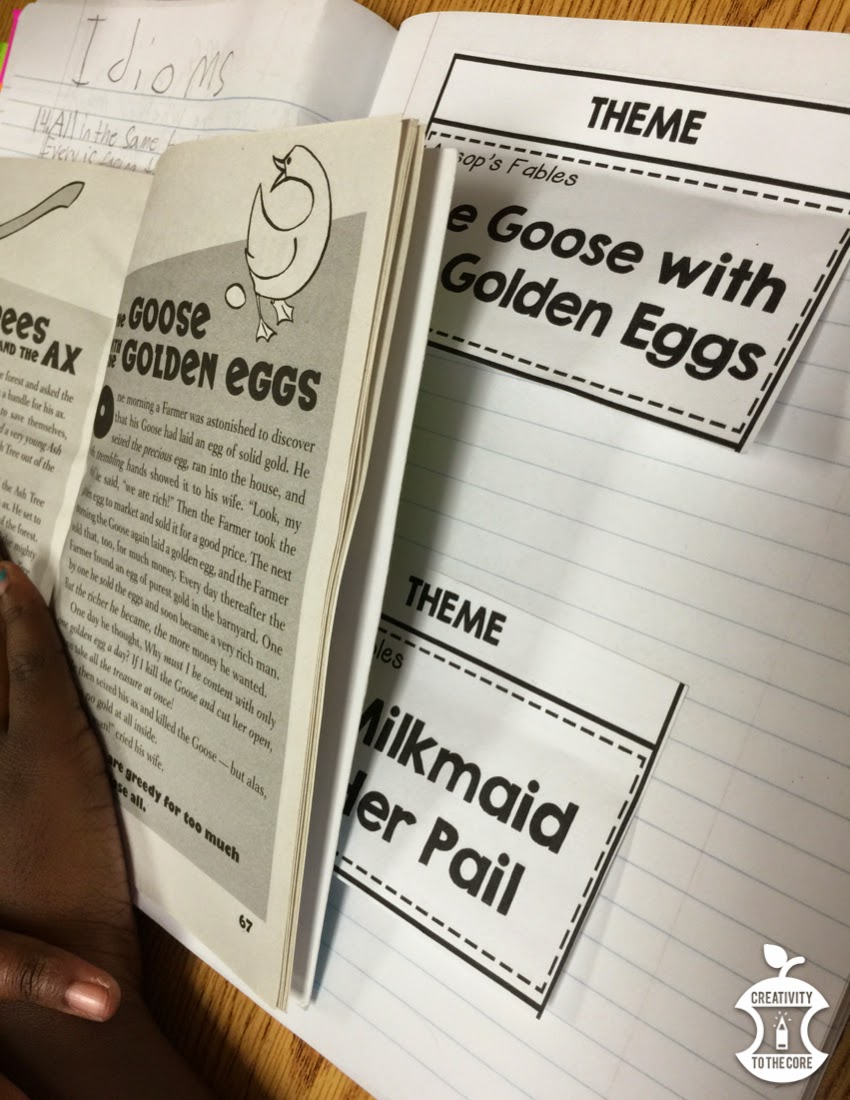 Idioms
All in the same
Every is
THEME
Aesop's Fables
Goose with
Golden Eggs
THEME
Milkmaid
Her Pail
AND THE AX
forest and asked the
a handle for his ax.
to save themselves,
a very young Ash
Tree out of the
the Ash Tree
ax. He set to
of the forest.
mighty
GOOSE
GOLDEN EGGS
One morning a Farmer was astonished to discover
that his Goose had laid an egg of solid gold. He
seized the precious egg, ran into the house, and
trembling hands showed it to his wife. "Look, my
he said, "we are rich!" Then the Farmer took the
egg to market and sold it for a good price. The next
morning the Goose again laid a golden egg, and the Farmer
sold that, too, for much money. Every day thereafter the
Farmer found an egg of purest gold in the barnyard. One
by one he sold the eggs and soon became a very rich man.
But the richer he became, the more money he wanted.
One day he thought, Why must I be content with only
one golden egg a day? If I kill the Goose and cut her open,
take all the treasure at once!
then seized his ax and killed the Goose — but alas,
no gold at all inside.
cried his wife.
are greedy for too much
all.
67
CREATIVITY
TO THE CORE